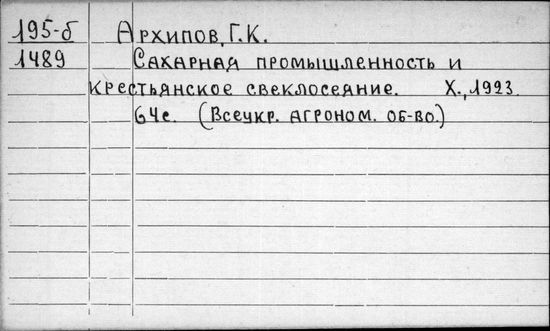 195-б Архипов, Г.К.
1489 Сахарная промышленность и
крестьянское свеклосеяние. Х., 1923.
64с. (Всеукр. агроном. об-во.)